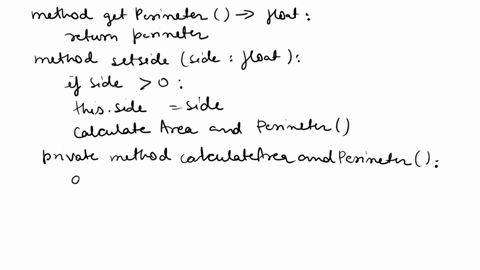 method get Perimeter () → float:
return perimeter
method setside (side : float):
if side > 0 :
this.side = side
calculate Area and Perimeter()
private method calculateAreaandPerimeter():
a